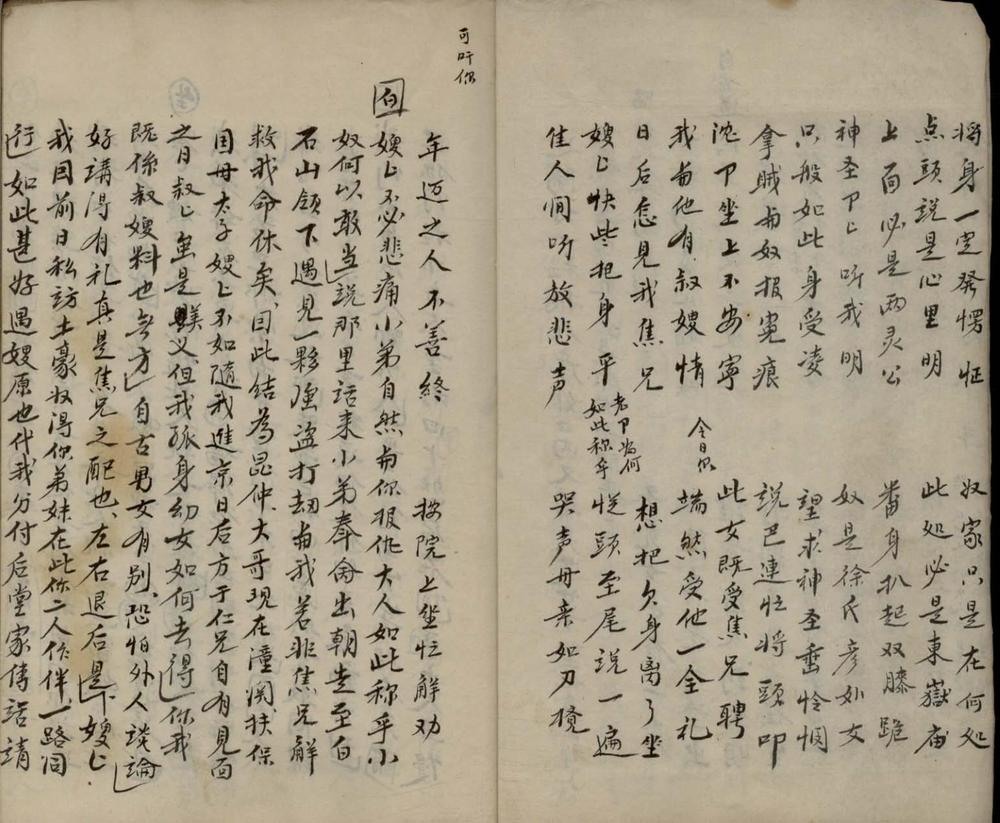 将身一定發愣怔　奴家只是在何处
点頭説是心里明　此処必是東嶽庙
上面必是两灵公　番身扒起双膝跪
神圣卩匕听我明　奴是徐氏彦妙女
只般如此身受凌　望求神圣垂怜悯
拿贼与奴报宽痕　説巴連忙将頭叩
沈卩坐上不安寧　此女既受焦兄聘
我与他有叔嫂情　今日似端然受他一全礼
日后怎見我焦兄　想把欠身离了坐
嫂匕快些把身平　老卩为何如此称乎
従頭至尾説一遍
佳人闻听放悲声　哭声母亲如刀攪
可吁你
年迈之人不善終　按院上坐忙解劝
白
嫂匕不必悲痛小弟自然与你报仇大人如此称乎小
奴何以敢当説那里話来小弟奉命出朝走至白
石山领下遇見一夥强盗打劫与我若非焦兄解
救我命休矣因此结為昆仲大哥現在潼関扶保
国母太子嫂匕不如隨我進京日后方于仁兄自有見面
之日叔匕虽是義但我孤身幼女如何去得你我
既係叔嫂料也无方自古男女有别恐怕外人談論
好講得有礼真是焦兄之配也左右退后是下嫂匕
我因前日私訪土豪収得你弟妹在此你二人作伴一路同
行如此甚好遇嫂原也代我分付后堂家傳話請